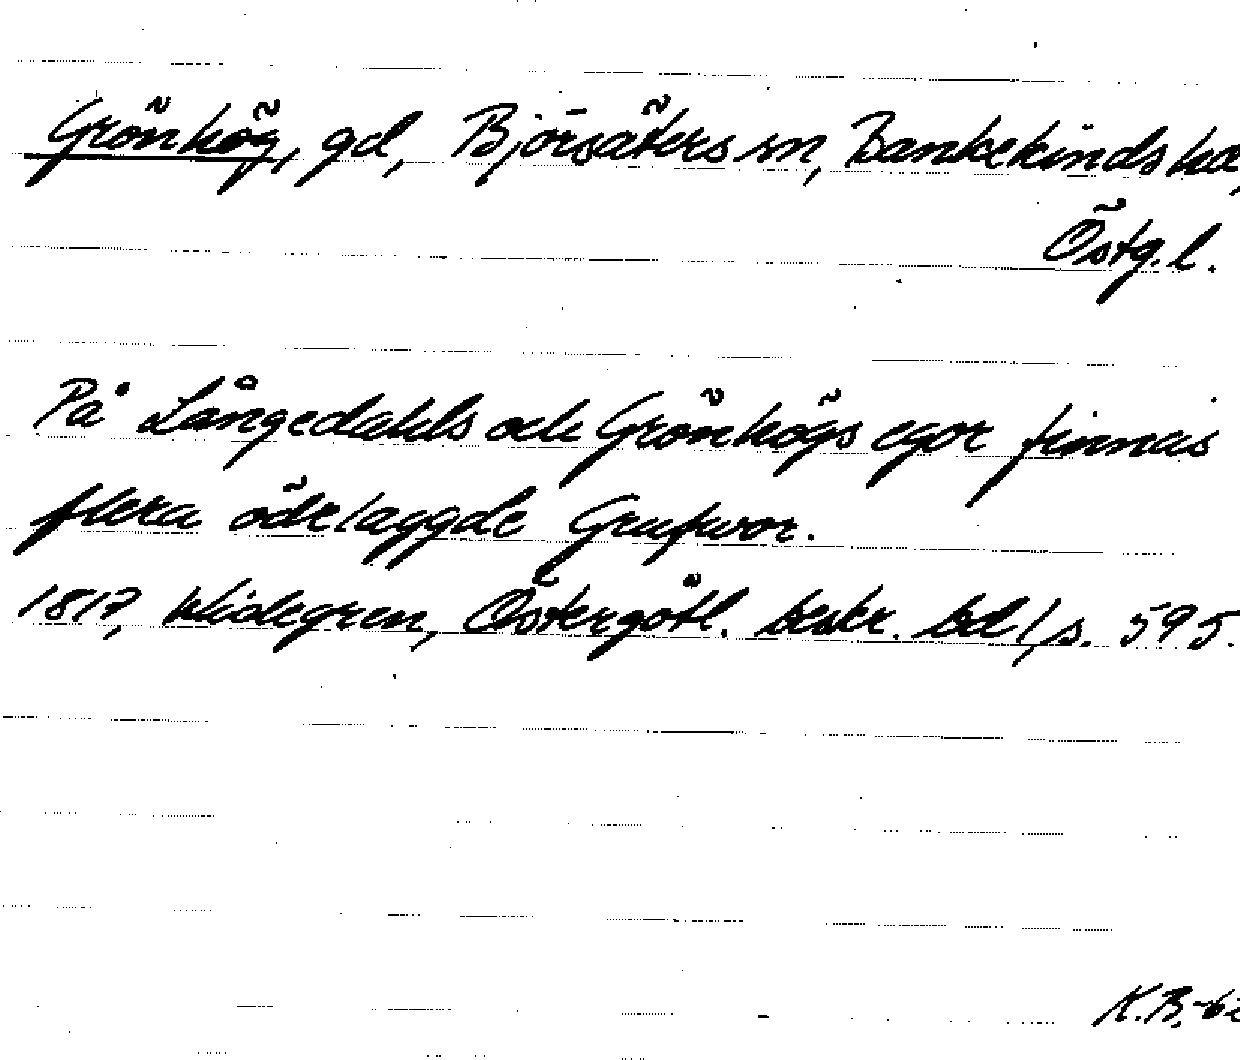 Grönhög, gd, Björsäters sn, Bankekinds hd,
Östg.l.
På Långedahls och Grönhögs egor finnas
flera ödelaggde Grufwor.
1817, Widegren, Östergötl. beskr. bd 1, s. 595.
K.B.